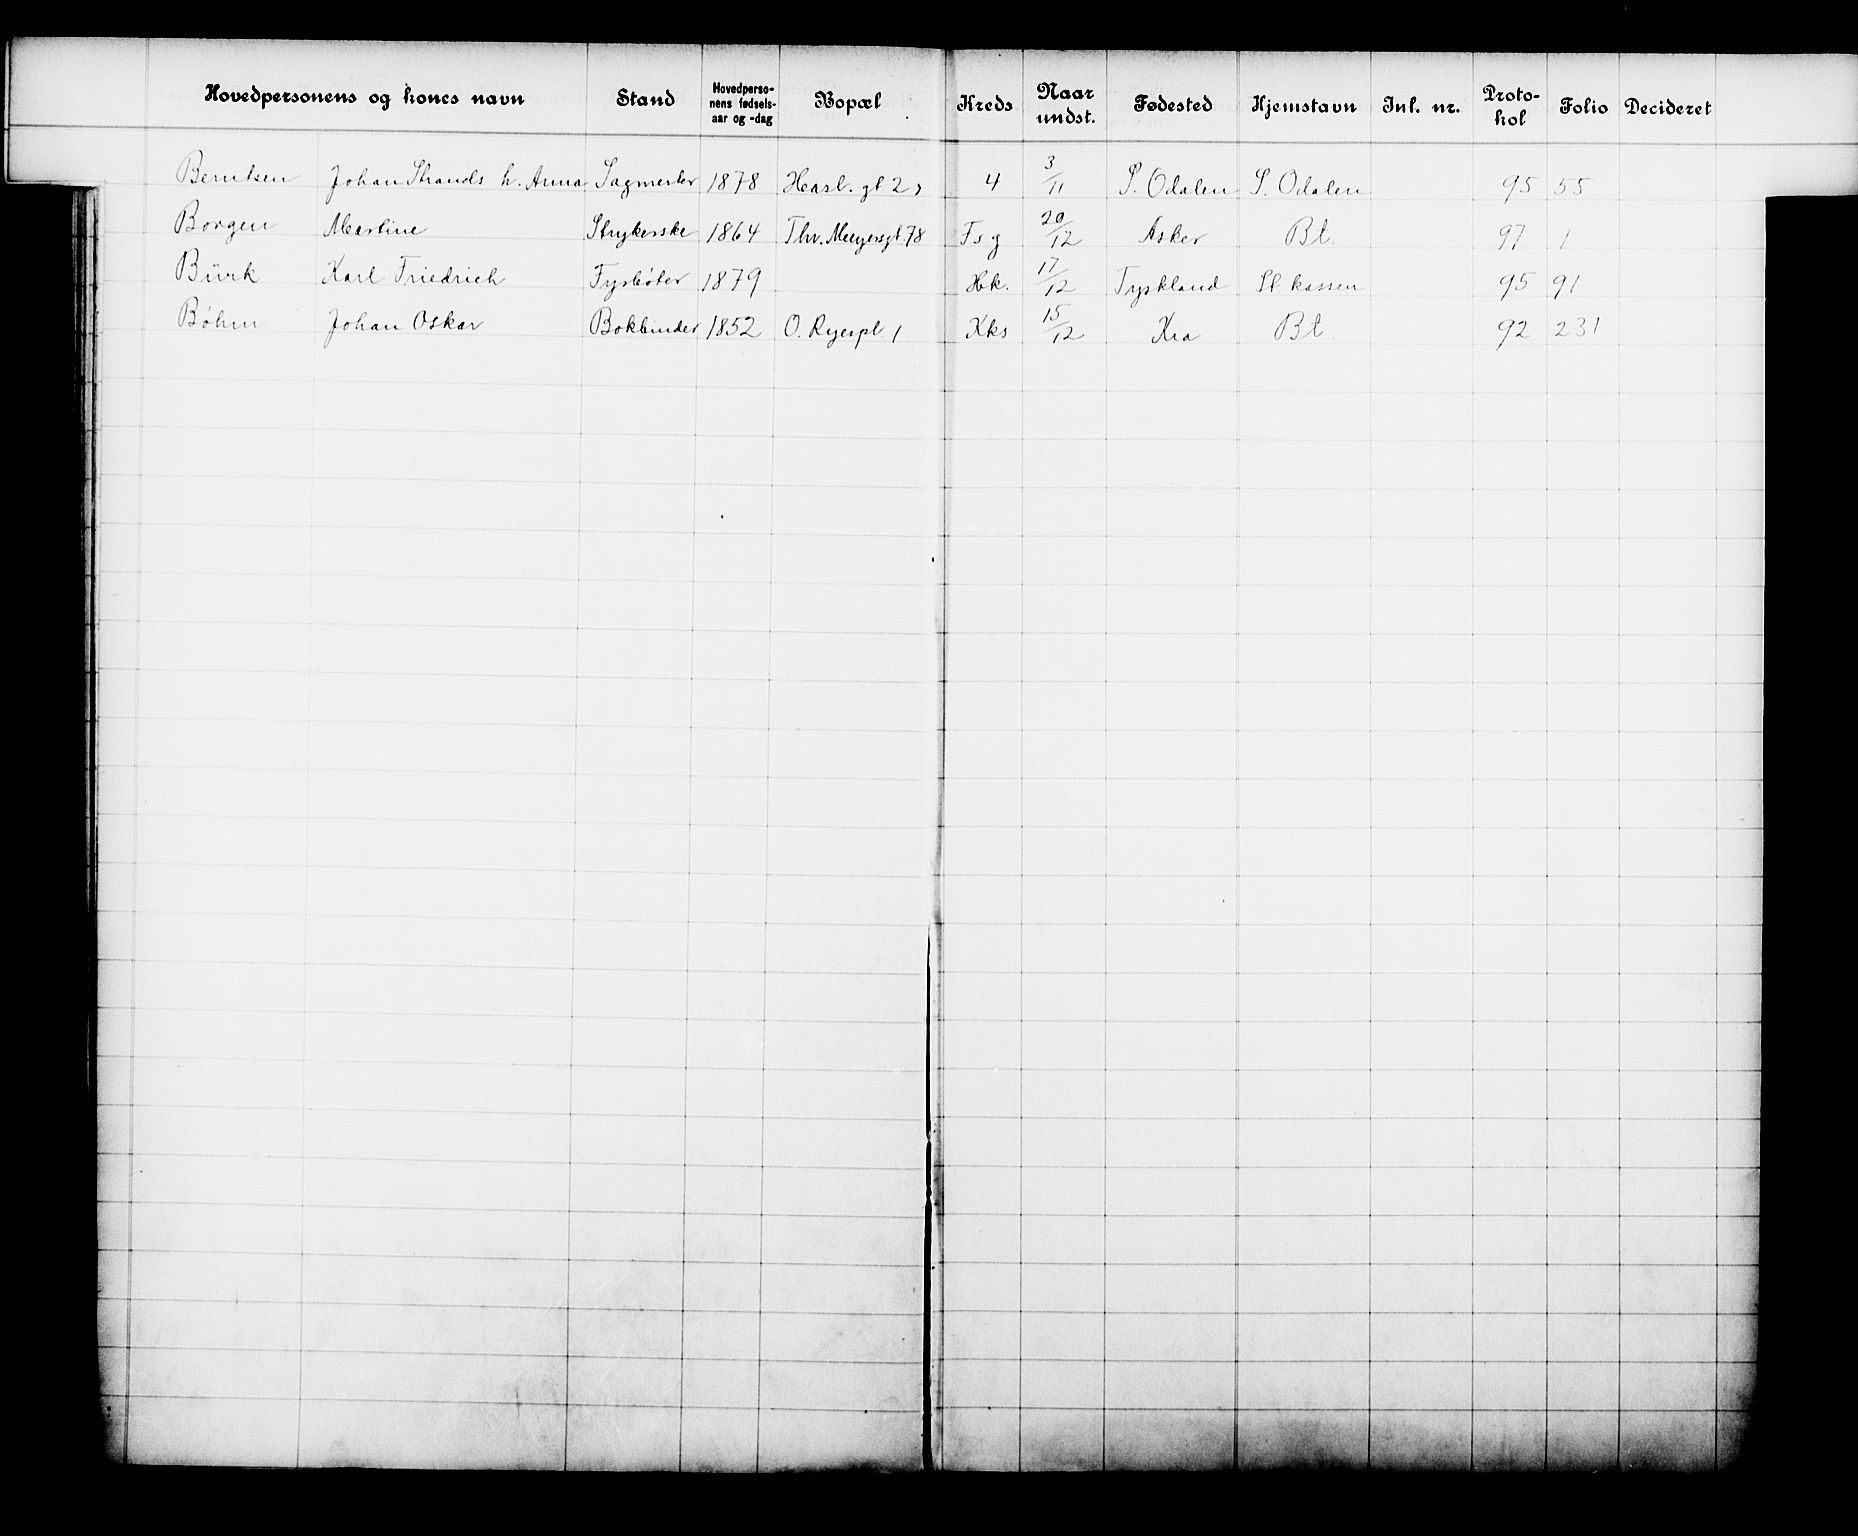 Hovedpersonens og kones navn Stand Hovedperso-nens fødsels-aar og -dag Bopæl Kreds Naar undst. Fødested Hjemstavn Inl. nr. Proto-kol Folio Decideret
Berntsen Johan Strands h. Anna Sagmester 1878 Hasl. gt 2 4 3/11 S. Odalen S. Odalen 95 55
Borgen Martine Strykerske 1864 Thv. Meyersgt. 78 Fsg 20/12 Asker Bt. 97 1
Bürk Karl Friedrich Fyrbøter 1879 Hk. 17/12 Tyskland St kassen 95 91
Bøhm Johan Oskar Bokbinder 1852 O. Ryespl. 1 Kks 15/12 Kra Bt. 92 231